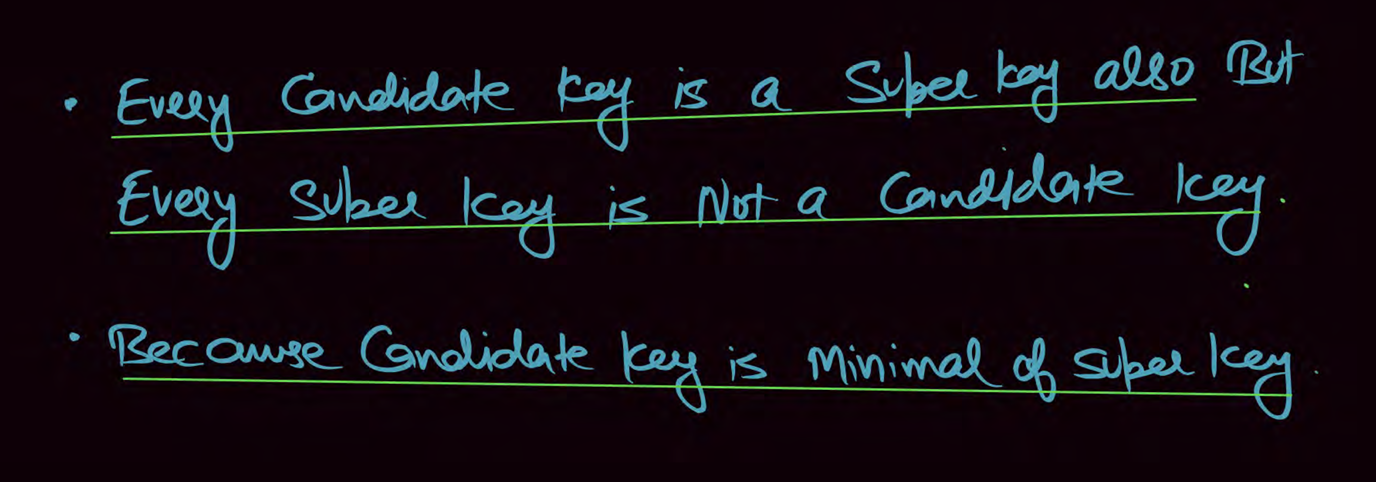 • Every Candidate key is a Super key also But
Every Super key is Not a Candidate key.
• Because Candidate key is Minimal of super key.